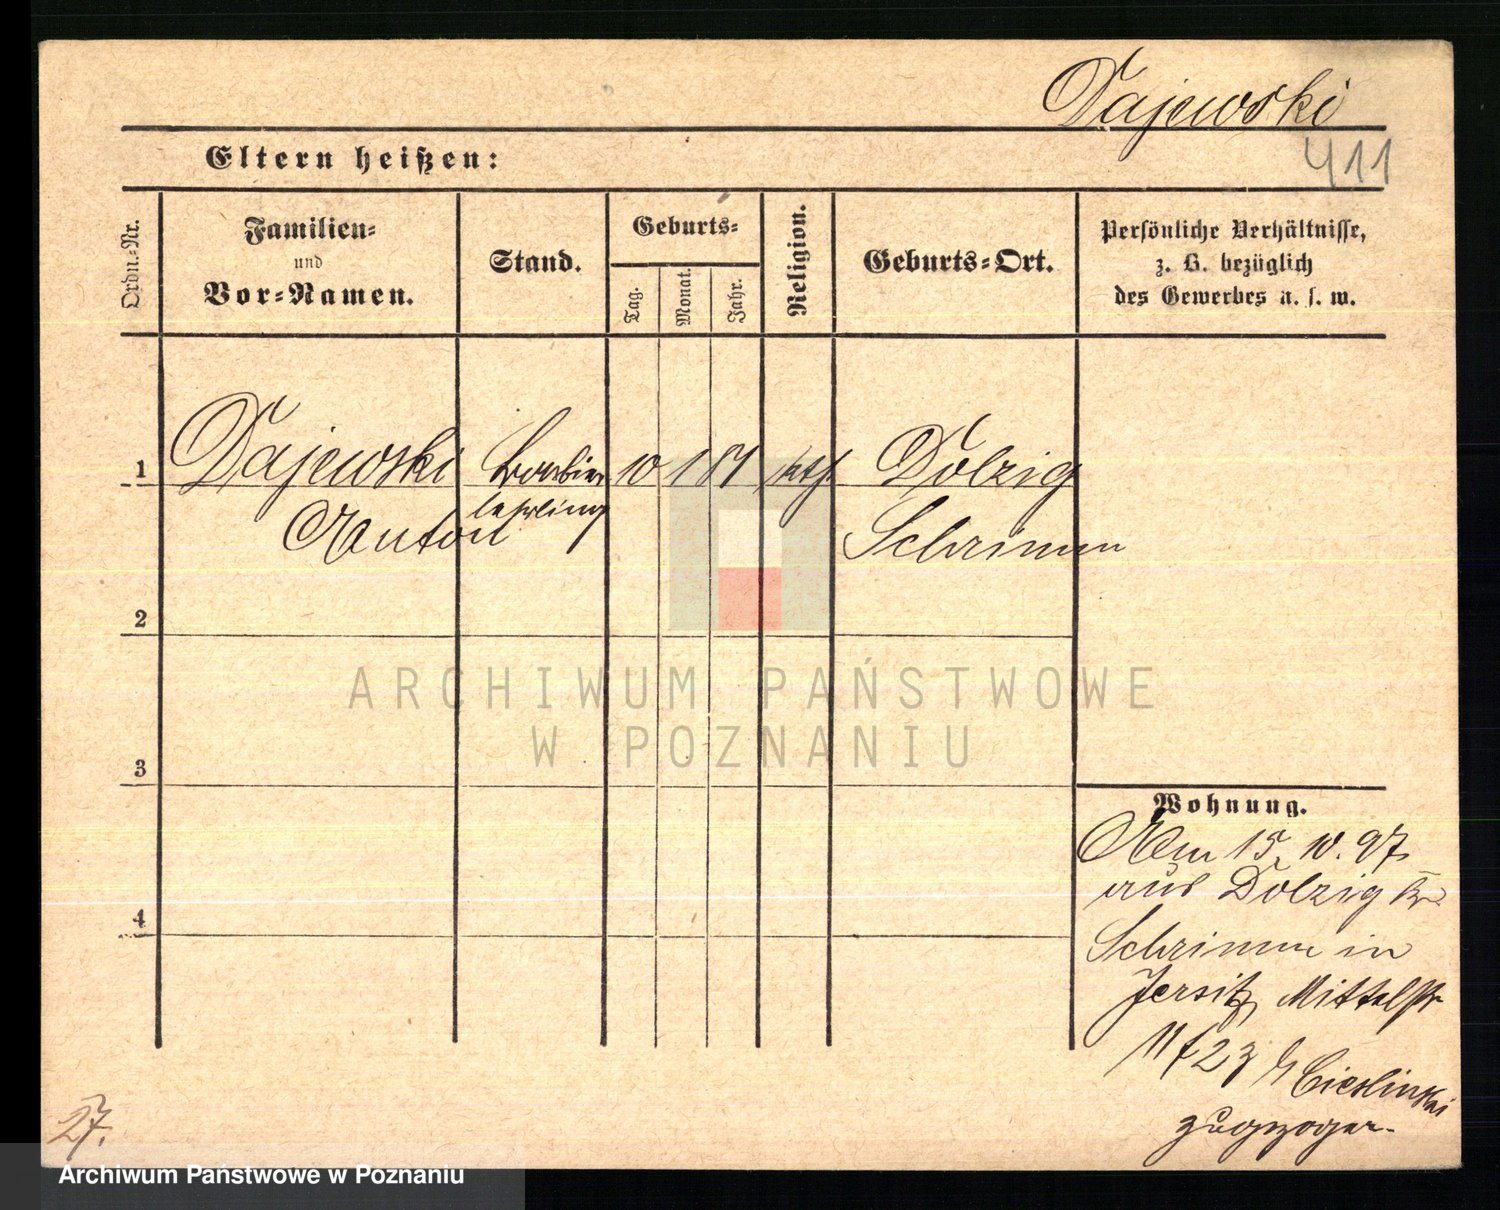 Dajewski
411
Eltern heißen:
Ordn.-Nr.
Familien-
und
Vor-Namen.
Stand.
Geburts-
Tag.
Monat.
Jahr.
Religion.
Geburts-Ort.
Persönliche Verhältnisse,
z. B. bezüglich
des Gewerbes u. s. w.
1 Dajewski Barbier 10 1 81 kath Dolzig
lehrling
Anton Schrimm
2
ARCHIWUM PAŃSTWOWE
W POZNANIU
3
Wohnung.
Am 15. 10. 97
aus Dolzig Kr.
4
Schrimm in
Jersitz, Mittelstr
11 f 2 z b Cieslinski
zugezogen.
27.
Archiwum Państwowe w Poznaniu